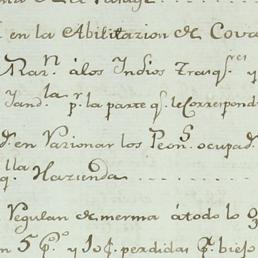 en la Abilitazion de Cova
Mar.n álos Indios Trasq.res y
Tand.la p.r la parte q.e le Correspond
d.o en Varionar los Peon.s ocupad
q.lla Hazienda
Vegulan de merma átodo lo
n 5 p.o y 10 p. perdidas p.r biejo